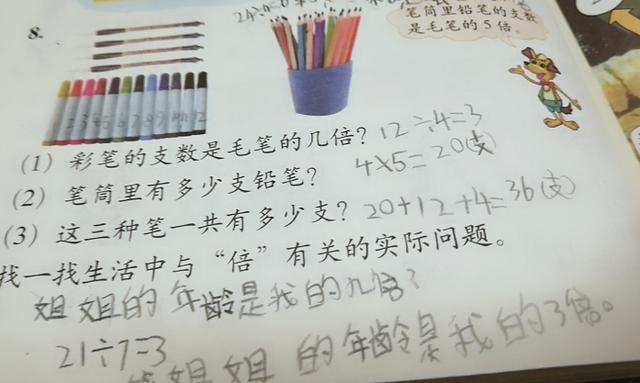 笔筒里铅笔的支数
是毛笔的5倍。
8.
(1) 彩笔的支数是毛笔的几倍? 12÷4=3
(2) 笔筒里有多少支铅笔? 4×5=20(支)
(3) 这三种笔一共有多少支? 20+12+4=36(支)
找一找生活中与“倍”有关的实际问题。
姐姐的年龄是我的几倍?
21÷7=3
姐姐的年龄是我的3倍。